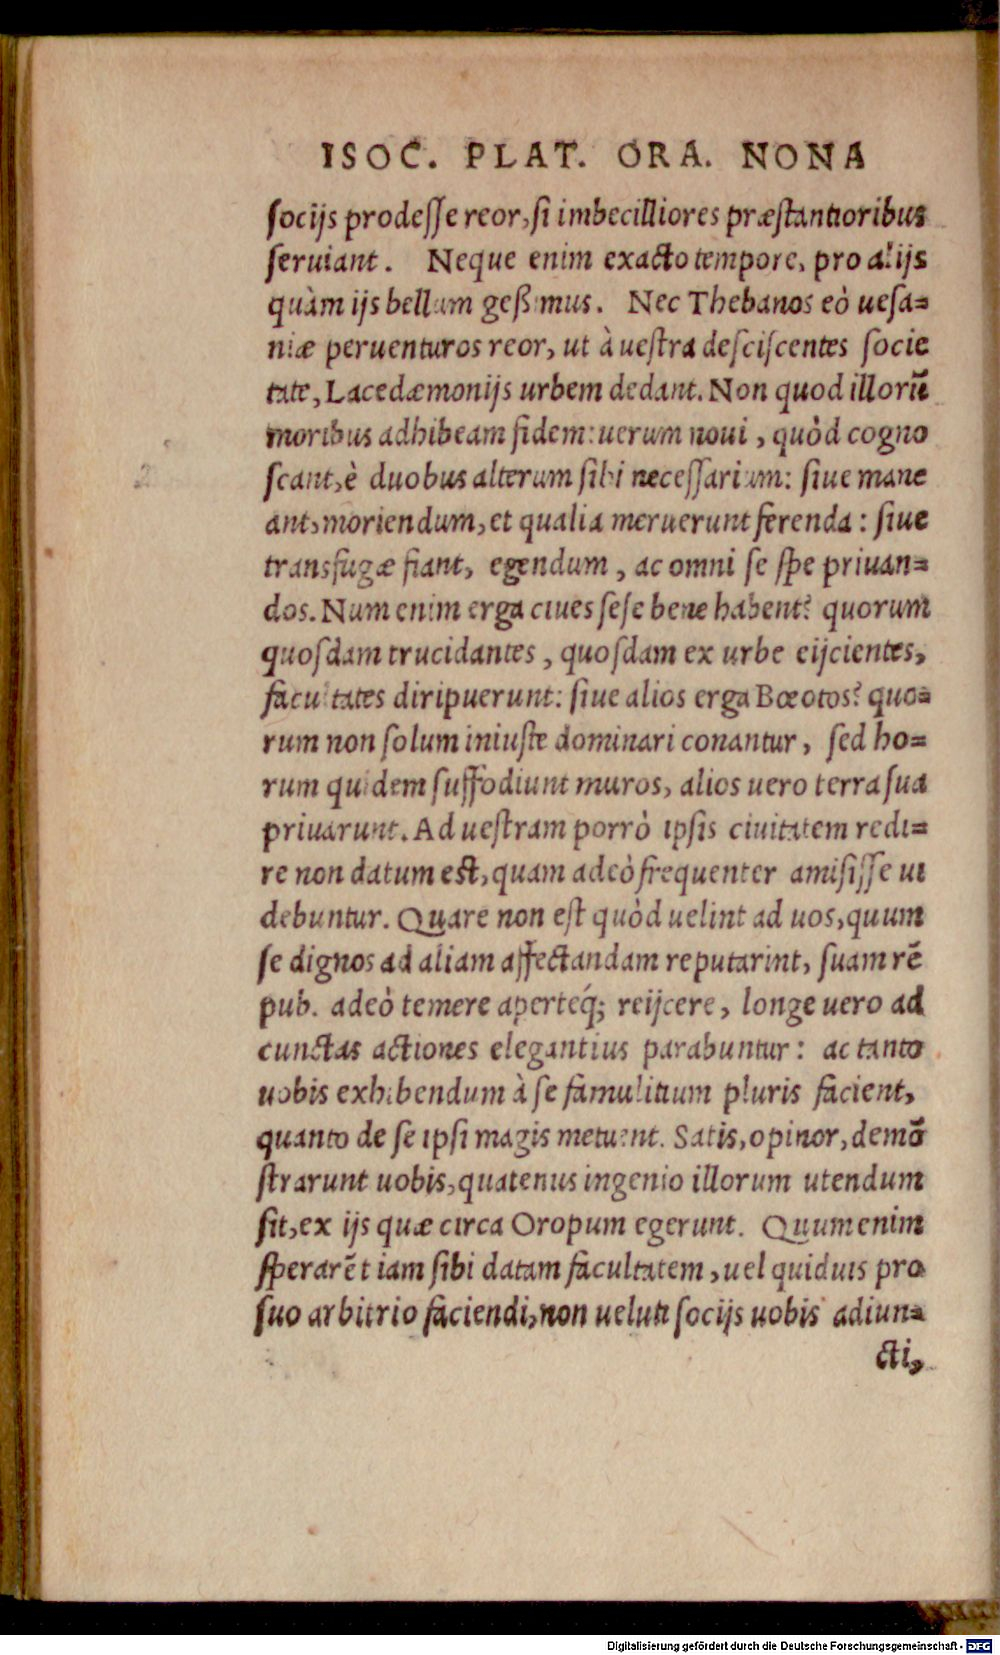 ISOC. PLAT. ORA. NONA
socijs prodesse reor, si imbecilliores præstantioribus
seruiant. Neque enim exacto tempore, pro alijs
quàm ijs bellum geßimus. Nec Thebanos eò uesa=
niæ peruenturos reor, ut à uestra desciscentes socie
tate, Lacedæmonijs urbem dedant. Non quod illorũ
moribus adhibeam fidem: uerum noui, quòd cogno
scant, è duobus alterum sibi necessarium: siue mane
ant, moriendum, et qualia meruerunt ferenda: siue
transfugæ fiant, egendum, ac omni se spe priuan=
dos. Num enim erga ciues sese bene habent? quorum
quosdam trucidantes, quosdam ex urbe eijcientes,
facultates diripuerunt: siue alios erga Bœotos? quo=
rum non solum iniuste dominari conantur, sed ho=
rum quidem suffodiunt muros, alios uero terra sua
priuarunt. Ad uestram porrò ipsis ciuitatem redi=
re non datum est, quam adeò frequenter amisisse ui
debuntur. Quare non est quòd uelint ad uos, quum
se dignos ad aliam affectandam reputarint, suam rẽ
pub. adeò temere aperteq́; reijcere, longe uero ad
cunctas actiones elegantius parabuntur: ac tanto
uobis exhibendum à se famulitium pluris facient,
quanto de se ipsi magis metuent. Satis, opinor, demõ
strarunt uobis, quatenus ingenio illorum utendum
sit, ex ijs quæ circa Oropum egerunt. Quum enim
sperarẽt iam sibi datam facultatem, uel quiduis pro
suo arbitrio faciendi, non ueluti socijs uobis adiun=
cti,
Digitalisierung gefördert durch die Deutsche Forschungsgemeinschaft - DFG